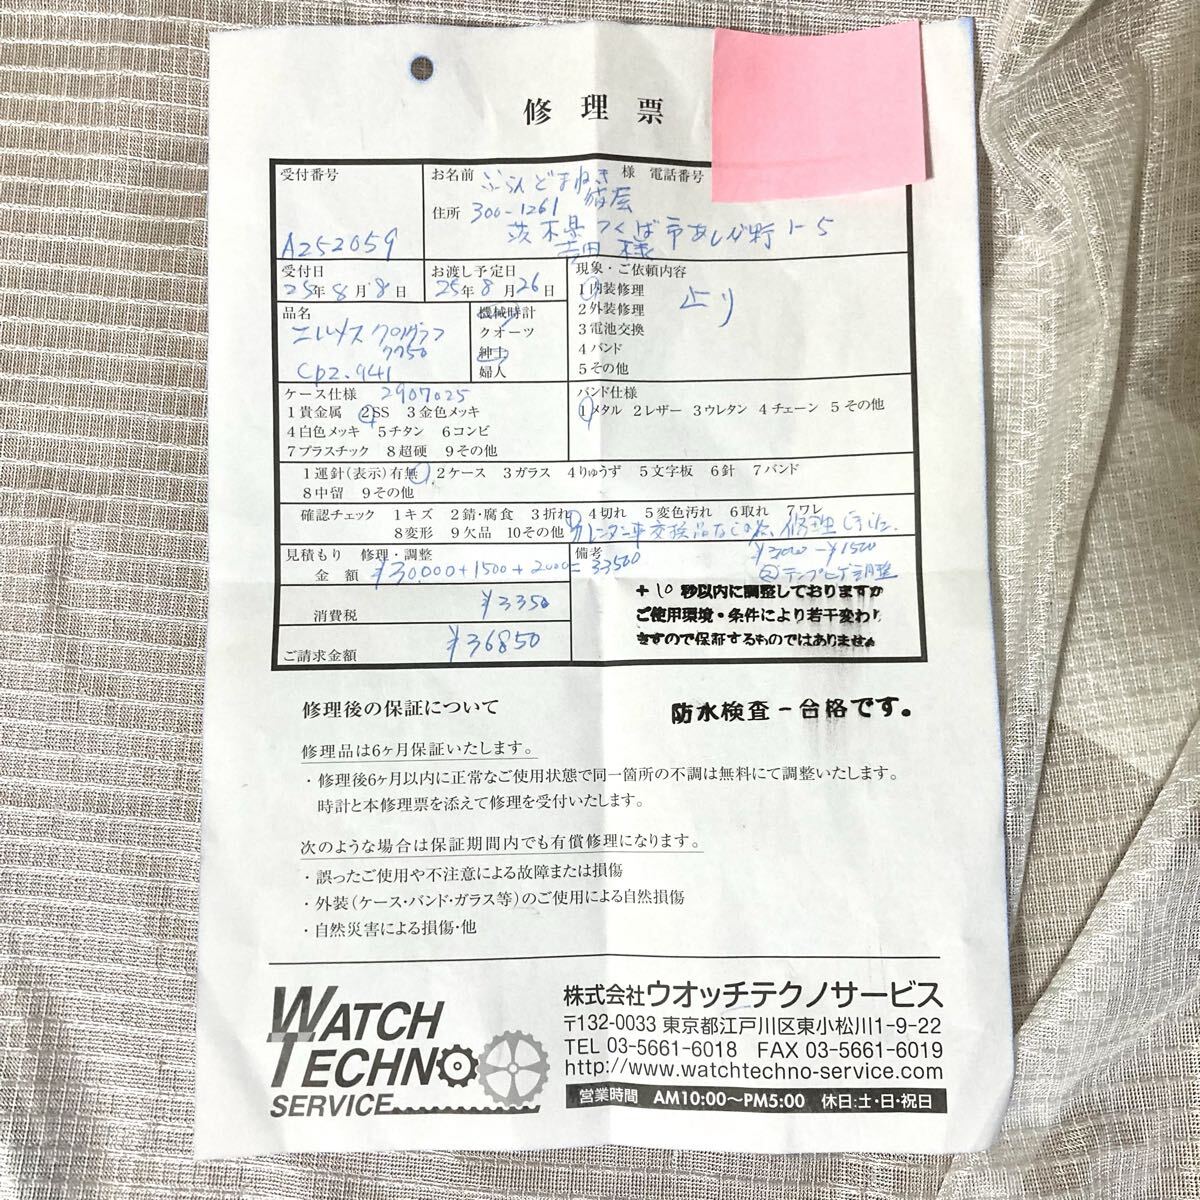 修理票
受付番号
A252059
お名前 ぶらんどまねき 様 電話番号
猫屋
住所 300-1261
茨木県つくば市あしび野1-5
吉田 様
受付日
25年8月8日
お渡し予定日
25年8月26日
現象・ご依頼内容
1内装修理
2外装修理
3電池交換
4バンド
5その他
止り
品名
エルメス クロノグラフ
7750
Cp2.941
機械時計
クオーツ
紳士
婦人
ケース仕様 2907025
1貴金属 2SS 3金色メッキ
4白色メッキ 5チタン 6コンビ
7プラスチック 8超硬 9その他
バンド仕様
1メタル 2レザー 3ウレタン 4チェーン 5その他
1運針(表示)有無 2ケース 3ガラス 4りゅうず 5文字板 6針 7バンド
8中留 9その他
確認チェック 1キズ 2錆・腐食 3折れ 4切れ 5変色汚れ 6取れ 7ワレ
8変形 9欠品 10その他
カレンダー車交換品なしの為、修理しました。
見積もり 修理・調整
金額 ¥30000+1500+2000=33500
備考
¥2000-¥1500
②テンプヒゲ調整
消費税 ¥3350
ご請求金額 ¥36850
+10 秒以内に調整しておりますが
ご使用環境・条件により若干変わり
ますので保証するものではありません
修理後の保証について
防水検査-合格です。
修理品は6ヶ月保証いたします。
・修理後6ヶ月以内に正常なご使用状態で同一箇所の不調は無料にて調整いたします。
時計と本修理票を添えて修理を受付いたします。
次のような場合は保証期間内でも有償修理になります。
・誤ったご使用や不注意による故障または損傷
・外装(ケース・バンド・ガラス等)のご使用による自然損傷
・自然災害による損傷・他
WATCH
TECHNO
SERVICE
株式会社ウオッチテクノサービス
〒132-0033 東京都江戸川区東小松川1-9-22
TEL 03-5661-6018 FAX 03-5661-6019
http://www.watchtechno-service.com
営業時間 AM10:00~PM5:00 休日:土・日・祝日